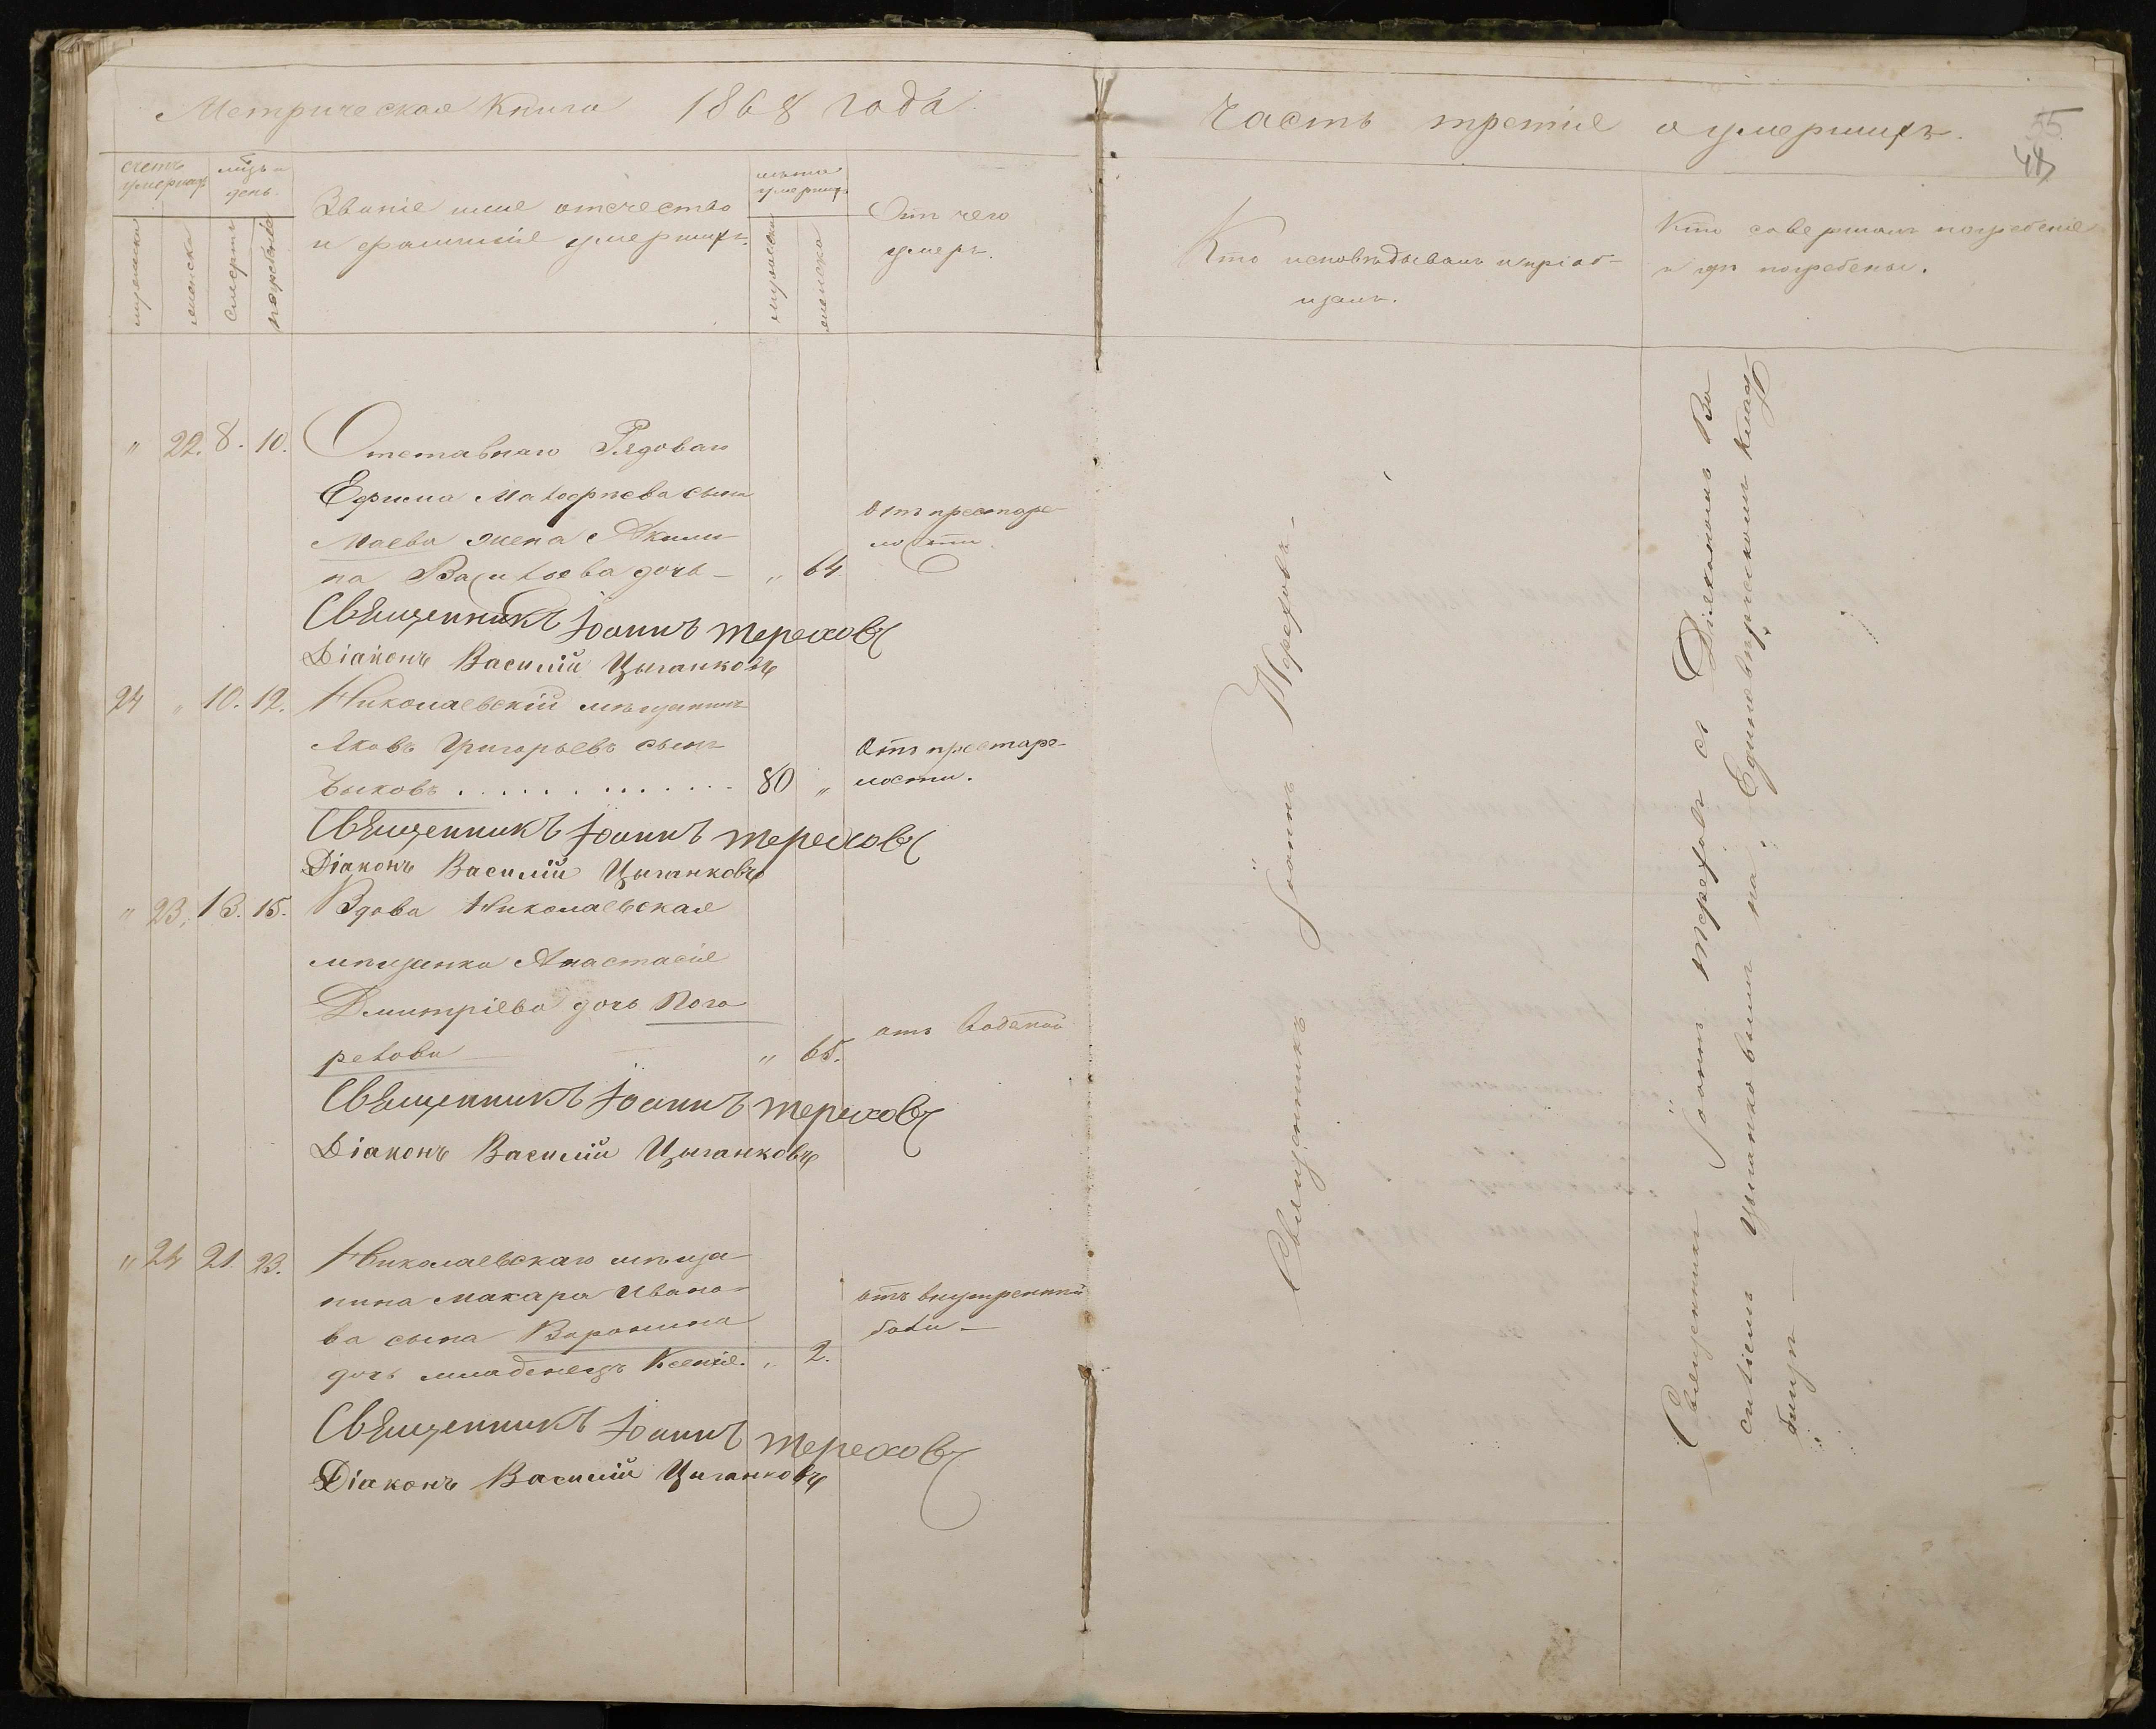 Метрическая Книга 1868 года.
счетъ умершихъ
мѣсяцъ и день.
Званіе имя отечество
и фамилія умершихъ.
лѣта умершихъ
Отъ чего
умеръ.
мужеска
женска
Смерти
погребенія
мужеска
женска
" 22. 8. 10. Отставнаго Рядоваго
Ефима
сына
Маева жена Акили-
на Васильева дочь - " 64.
Отъ престаре-
лости.
Священникъ Іоаннъ Тереховъ
Діаконъ Василій Цыганковъ
24 " 10. 12. Николаевскій мѣщанинъ
Яковъ Григорьевъ сынъ
Быковъ . . . . . . . . . . . . 80 "
Отъ престаре-
лости.
Священникъ Іоаннъ Тереховъ
Діаконъ Василій Цыганковъ
" 23. 13. 15. Вдова Николаевская
мѣщанка Анастасія
Дмитріева дочь Пого
релова " 65.
отъ водяной
Священникъ Іоаннъ Тереховъ
Діаконъ Василій Цыганковъ
" 24 21. 23. Николаевскаго мѣща-
нина Макара Ивано-
ва сына Воронина
дочь младенецъ Ксенія. " 2.
отъ внутренний
боли -
Священникъ Іоаннъ Тереховъ
Діаконъ Василій Цыганковъ
Часть третія о умершихъ.
Кто исповѣдывалъ и пріоб-
щалъ.
Кто совершалъ погребеніе
и гдѣ погребены.
Священникъ Іоаннъ Тереховъ -
Священникъ Іоаннъ Тереховъ съ Діакономъ Ва
силіемъ Цыганковымъ на Единовѣрческомъ Клад
бищѣ -